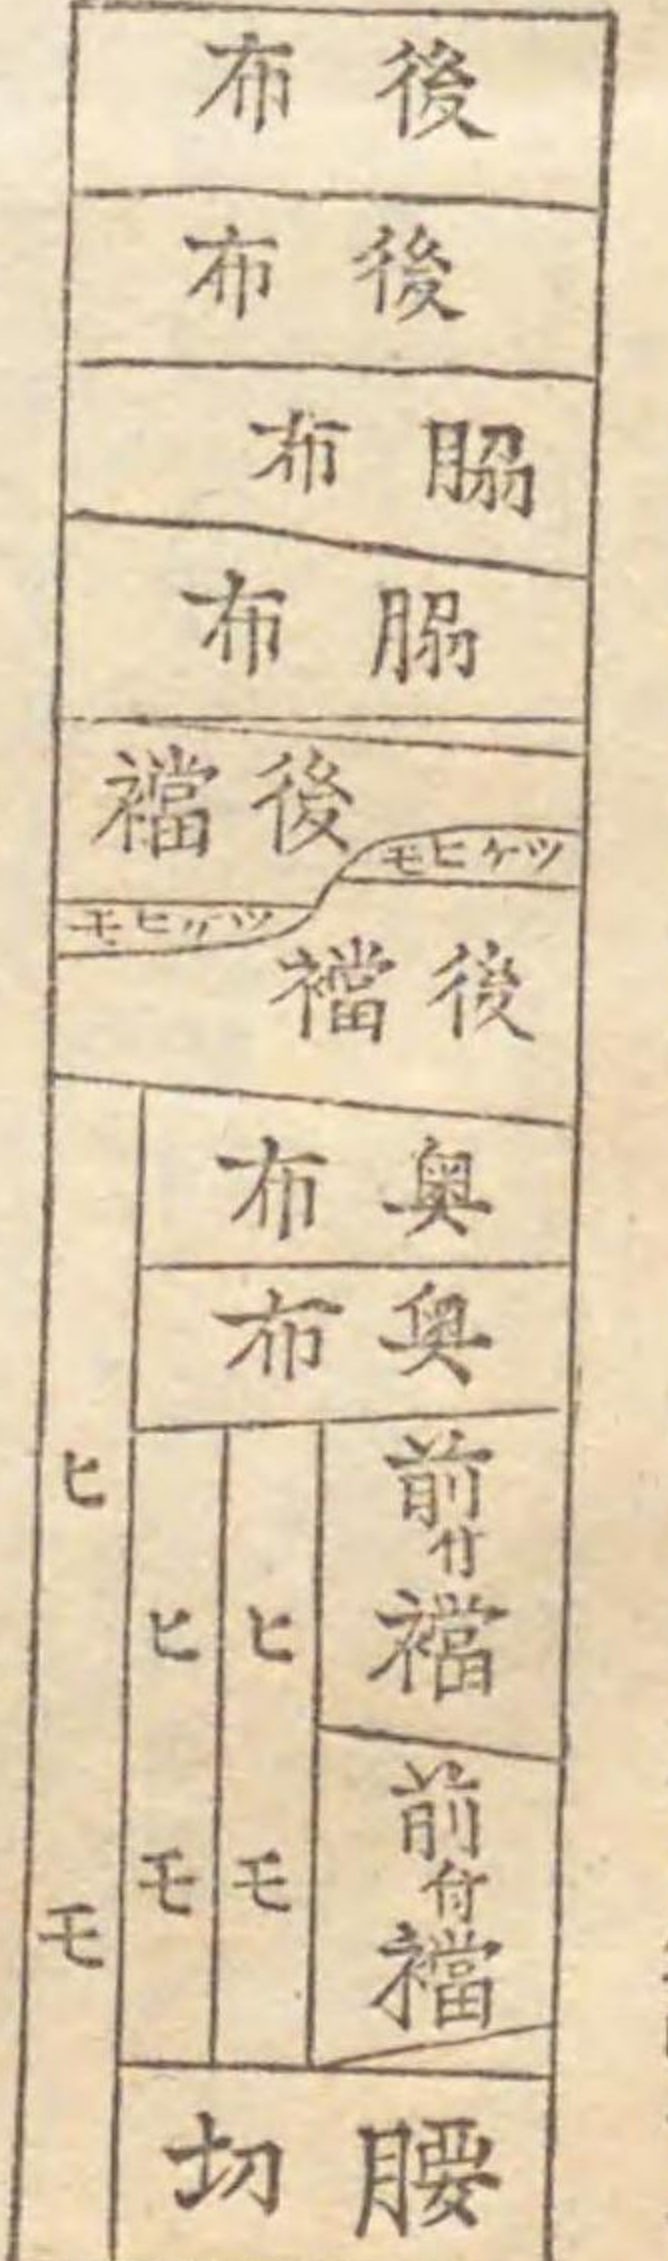 後布
後布
脇布
脇布
後襠
ツケヒモ
ツケヒモ
後襠
奥布
奥布
前付襠
ヒモ
ヒモ
ヒモ
前付襠
腰切